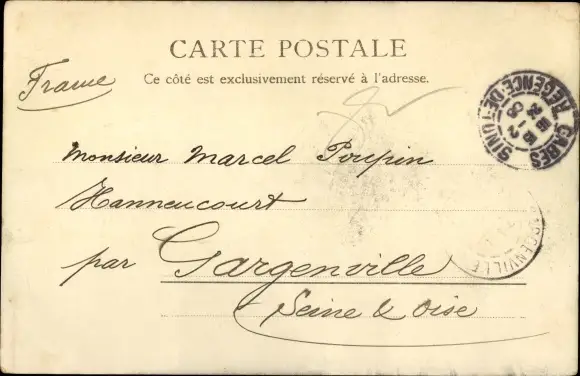 CARTE POSTALE
Ce côté est exclusivement réservé à l'adresse.
France
Monsieur Marcel Poupin
Hanneucourt
par Gargenville
Seine & Oise
GABES
REGENCE DE TUNIS
GARGENVILLE